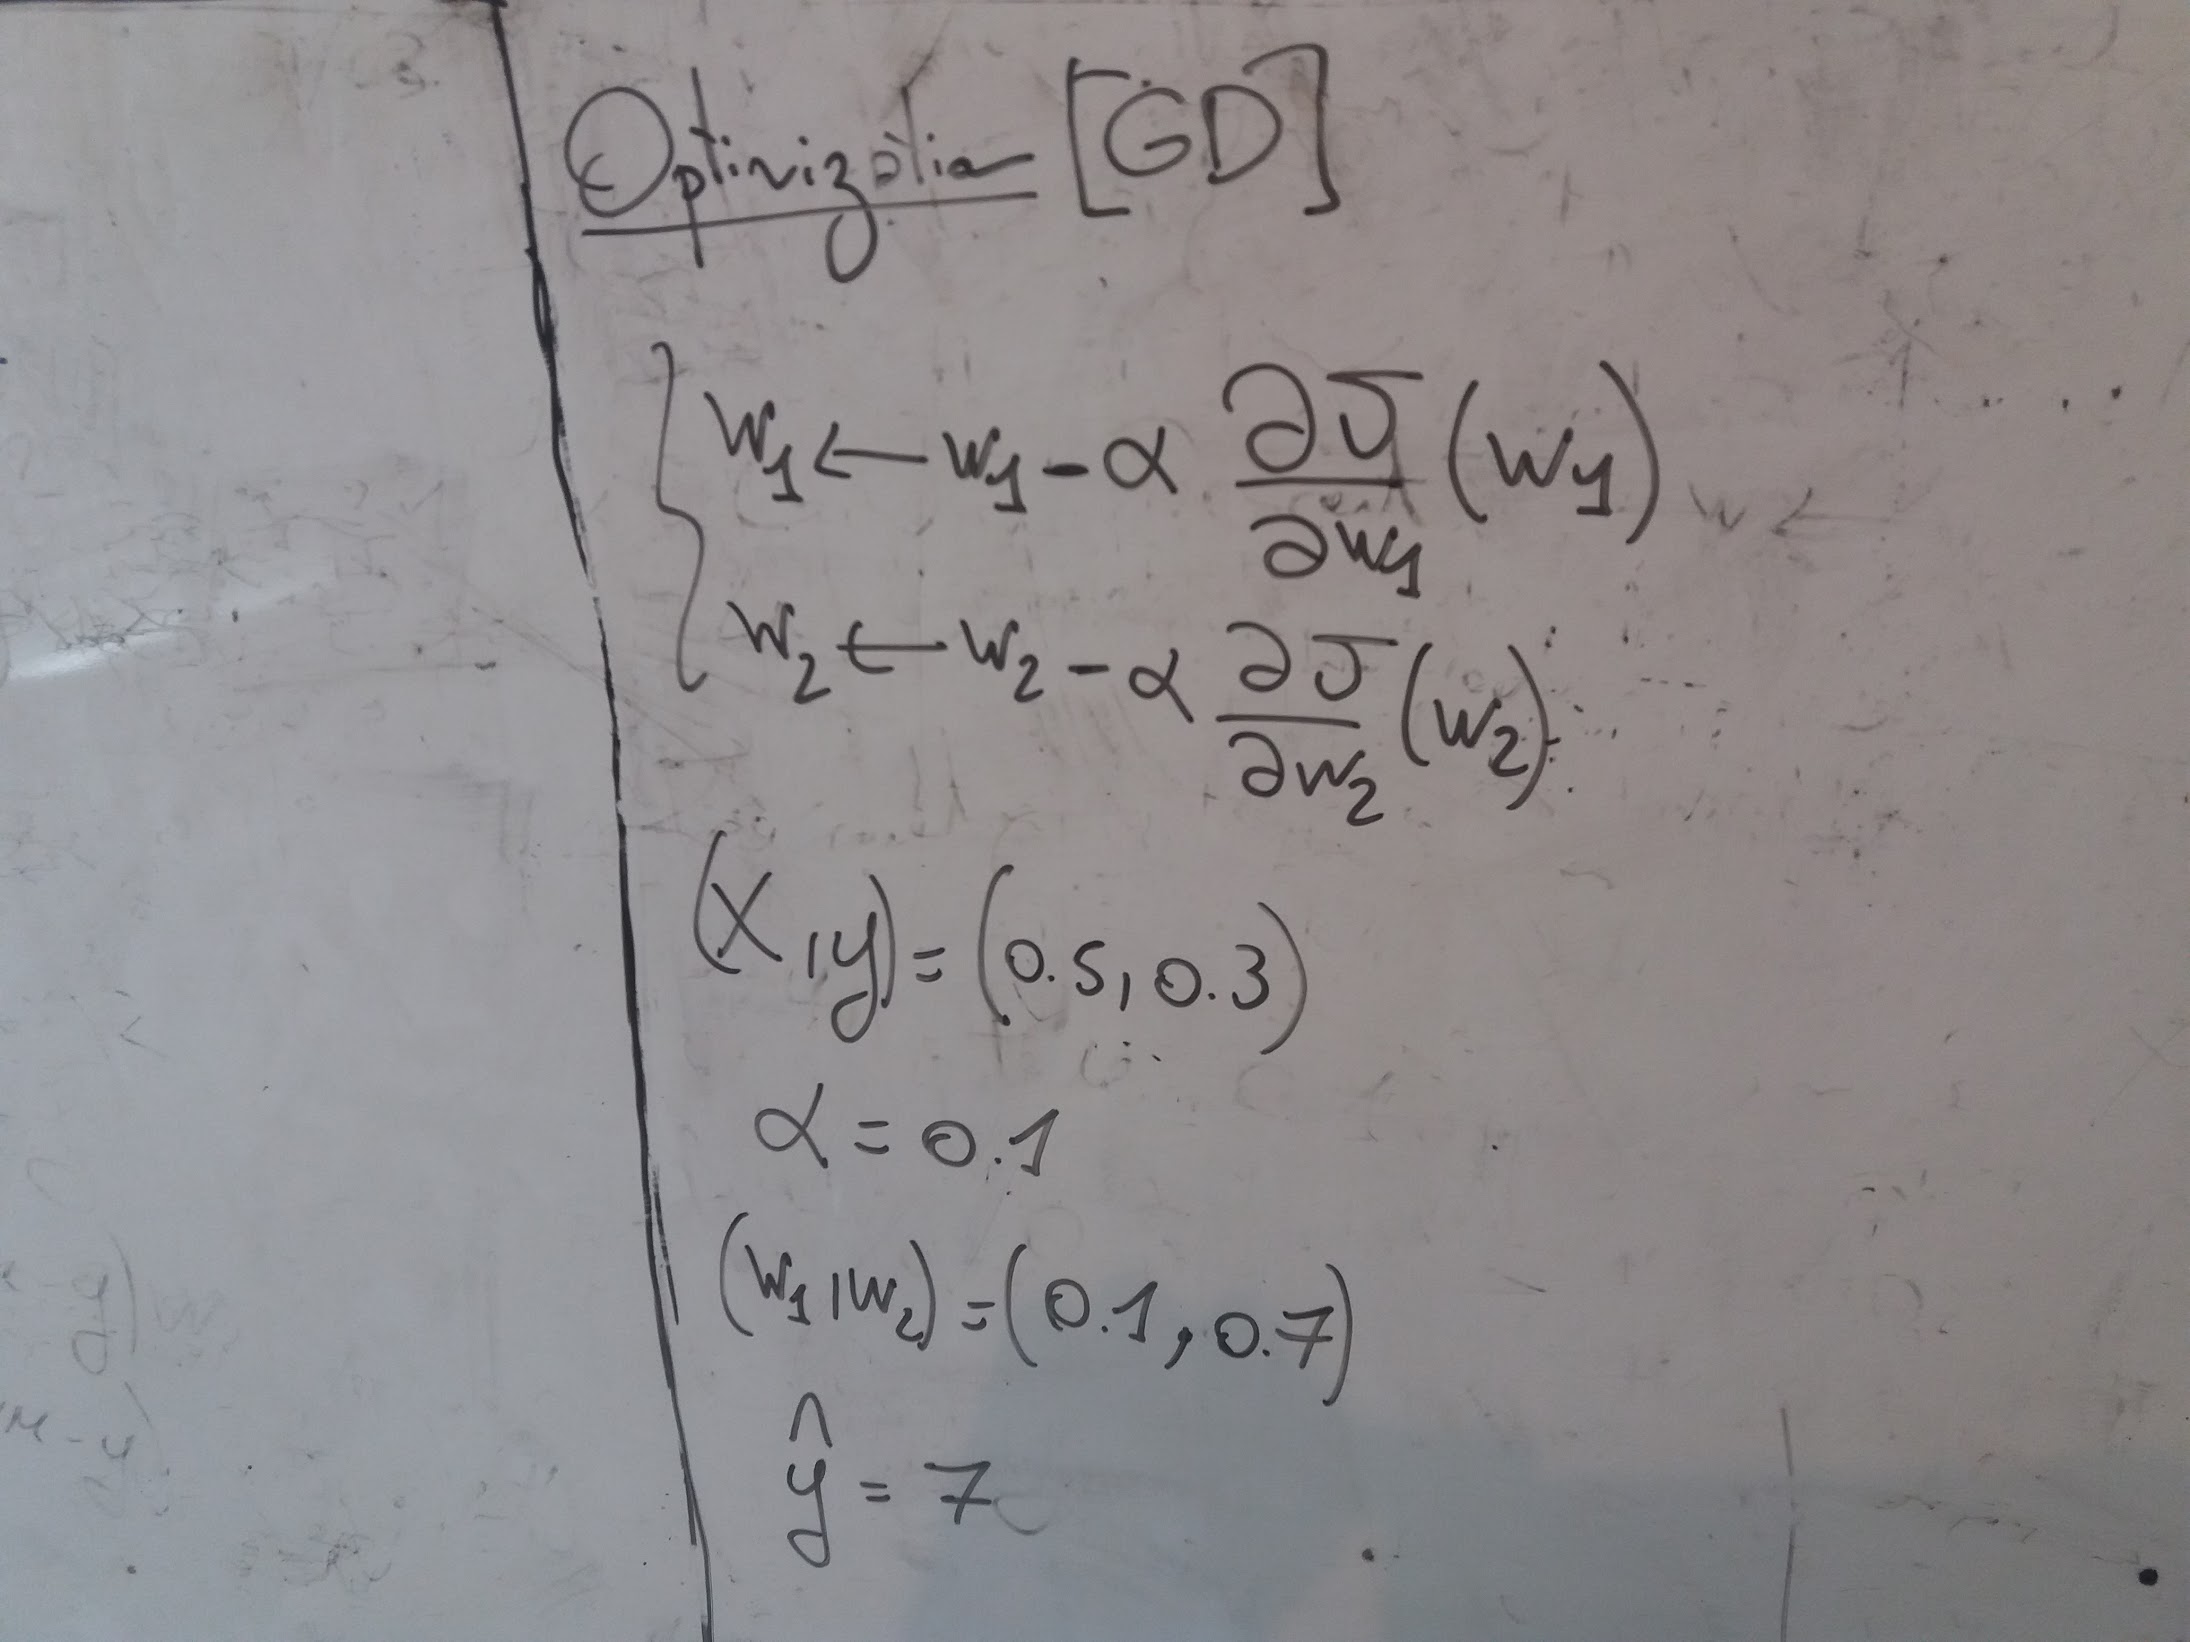 Optimization [GD]
w₁ ← w₁ - α ∂J/∂w₁ (w₁)
w₂ ← w₂ - α ∂J/∂w₂ (w₂)
(x, y) = (0.5, 0.3)
α = 0.1
(w₁, w₂) = (0.1, 0.7)
ŷ = 7